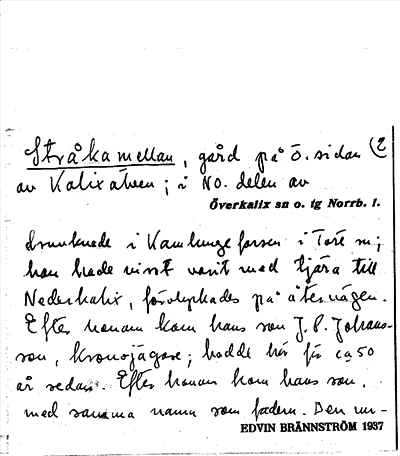 Stråkamellan, gård på ö. sidan (2
av Kalixälven; i NO. delen av
Överkalix sn o. tg Norrb. l.
drunknade i Kamlungeforsen i Töre sn;
han hade visst varit med tjära till
Nederkalix, förolyckades på återvägen.
Efter honom kom hans son J. P. Johans-
son, kronojägare; hadde här för ca 50
år sedan. Efter honom kom hans son,
med samma namn som fadern. Den nu-
EDVIN BRÄNNSTRÖM 1937